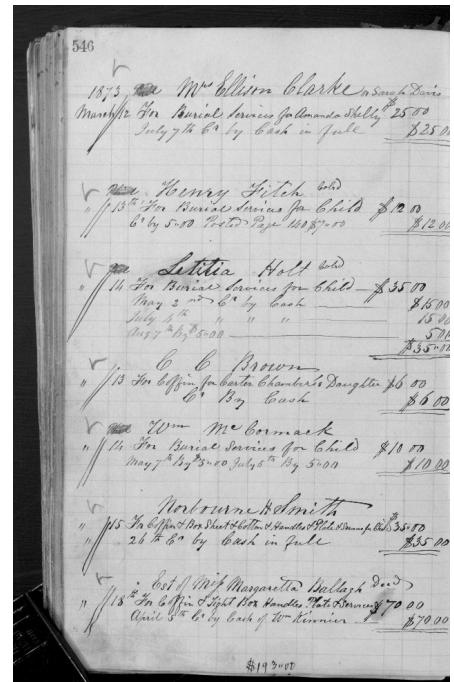 546
1873 Mrs Ellison Clarke or Sarah Davis
March 12 For Burial Services for Amanda Shelby $25.00
July 7th Cr by Cash in full $25.00
Henry Fitch Cold
" 13th For Burial Services for Child $12.00
Cr by 5.00 Posted Page 140 $7.00 $12.00
Letitia Holt Cold
" 14 For Burial Services for Child — $35.00
May 2nd Cr by Cash $15.00
July 4th " " " 15.00
Aug 7th By $5.00 5.00
$35.00
C C Brown
" 13 For Coffin for Carter Chambers Daughter $6.00
Cr By Cash $6.00
Wm McCormack
" 14 For Burial Services for Child $10.00
May 7th By $5.00 July 5th By 5.00 $10.00
Norbourne H Smith
" 15 For Coffin & Box Sheet & Cotton & Handles & Plate & for $35.00
26th Cr by Cash in full $35.00
Est of Miss Margaretta Ballagh Decd
" 18th For Coffin & Tight Box Handles Plate & Services $70.00
April 5th Cr by Cash of Wm Kinnier $70.00
$193.00